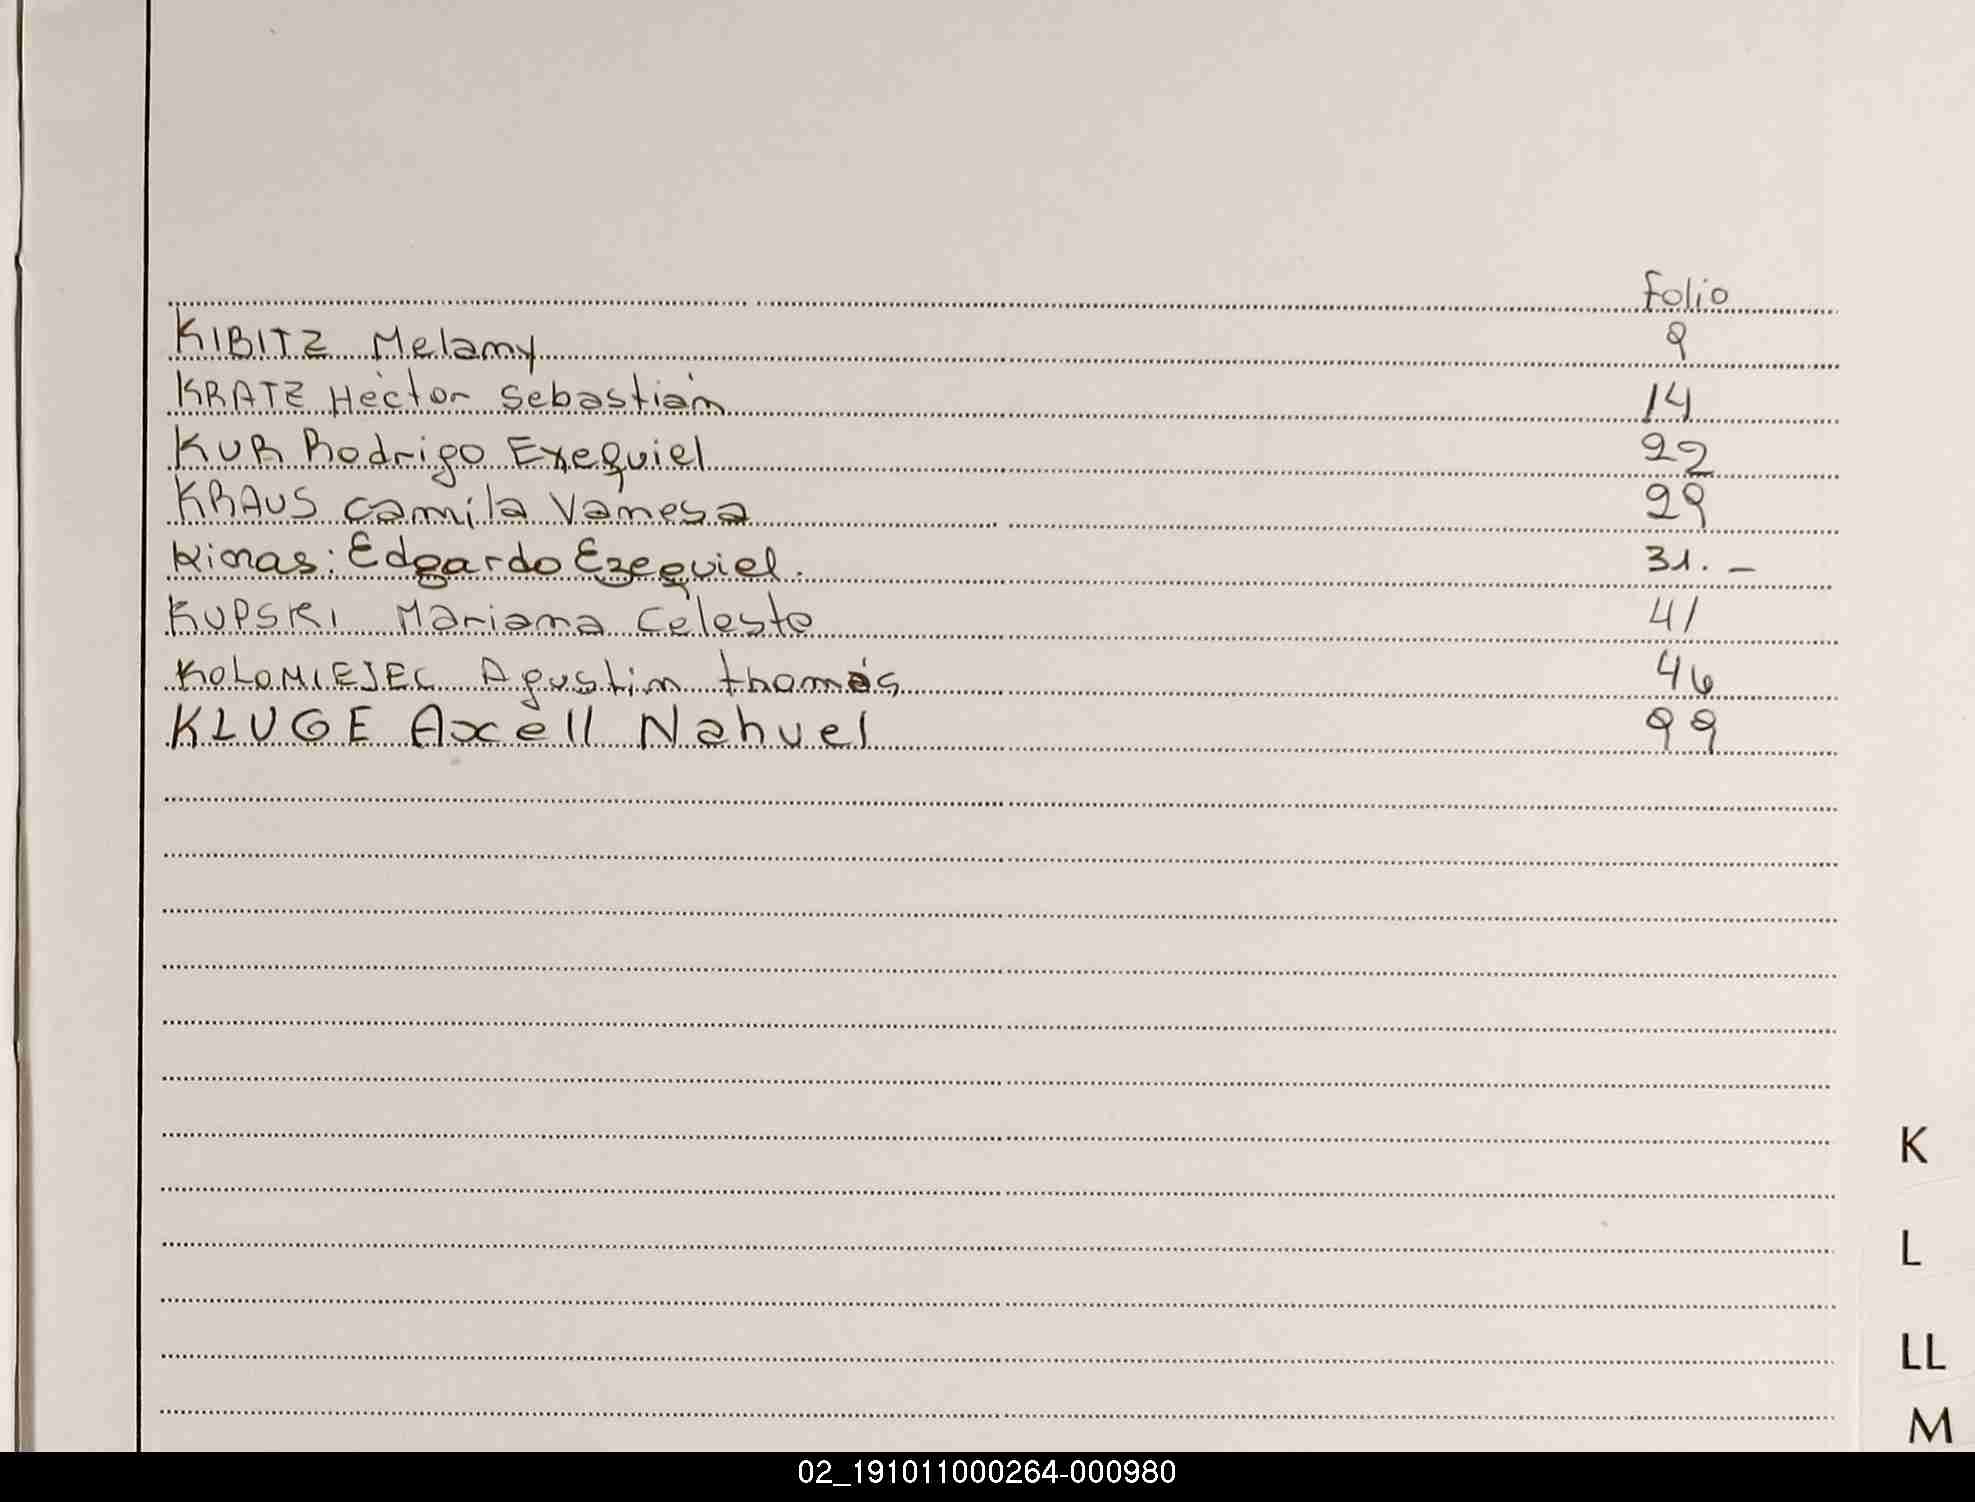 Folio
KIBITZ Melany 9
KRATZ Héctor Sebastián 14
KUR Rodrigo Exequiel 22
KRAUS Camila Vanesa 29
Kinas: Edgardo Ezequiel. 31. -
KUPSKI Mariana Celeste 41
KOLOMIEJEC Agustin thomás 46
KLUGE Axcell Nahuel 99
K
L
LL
M
02_191011000264-000980